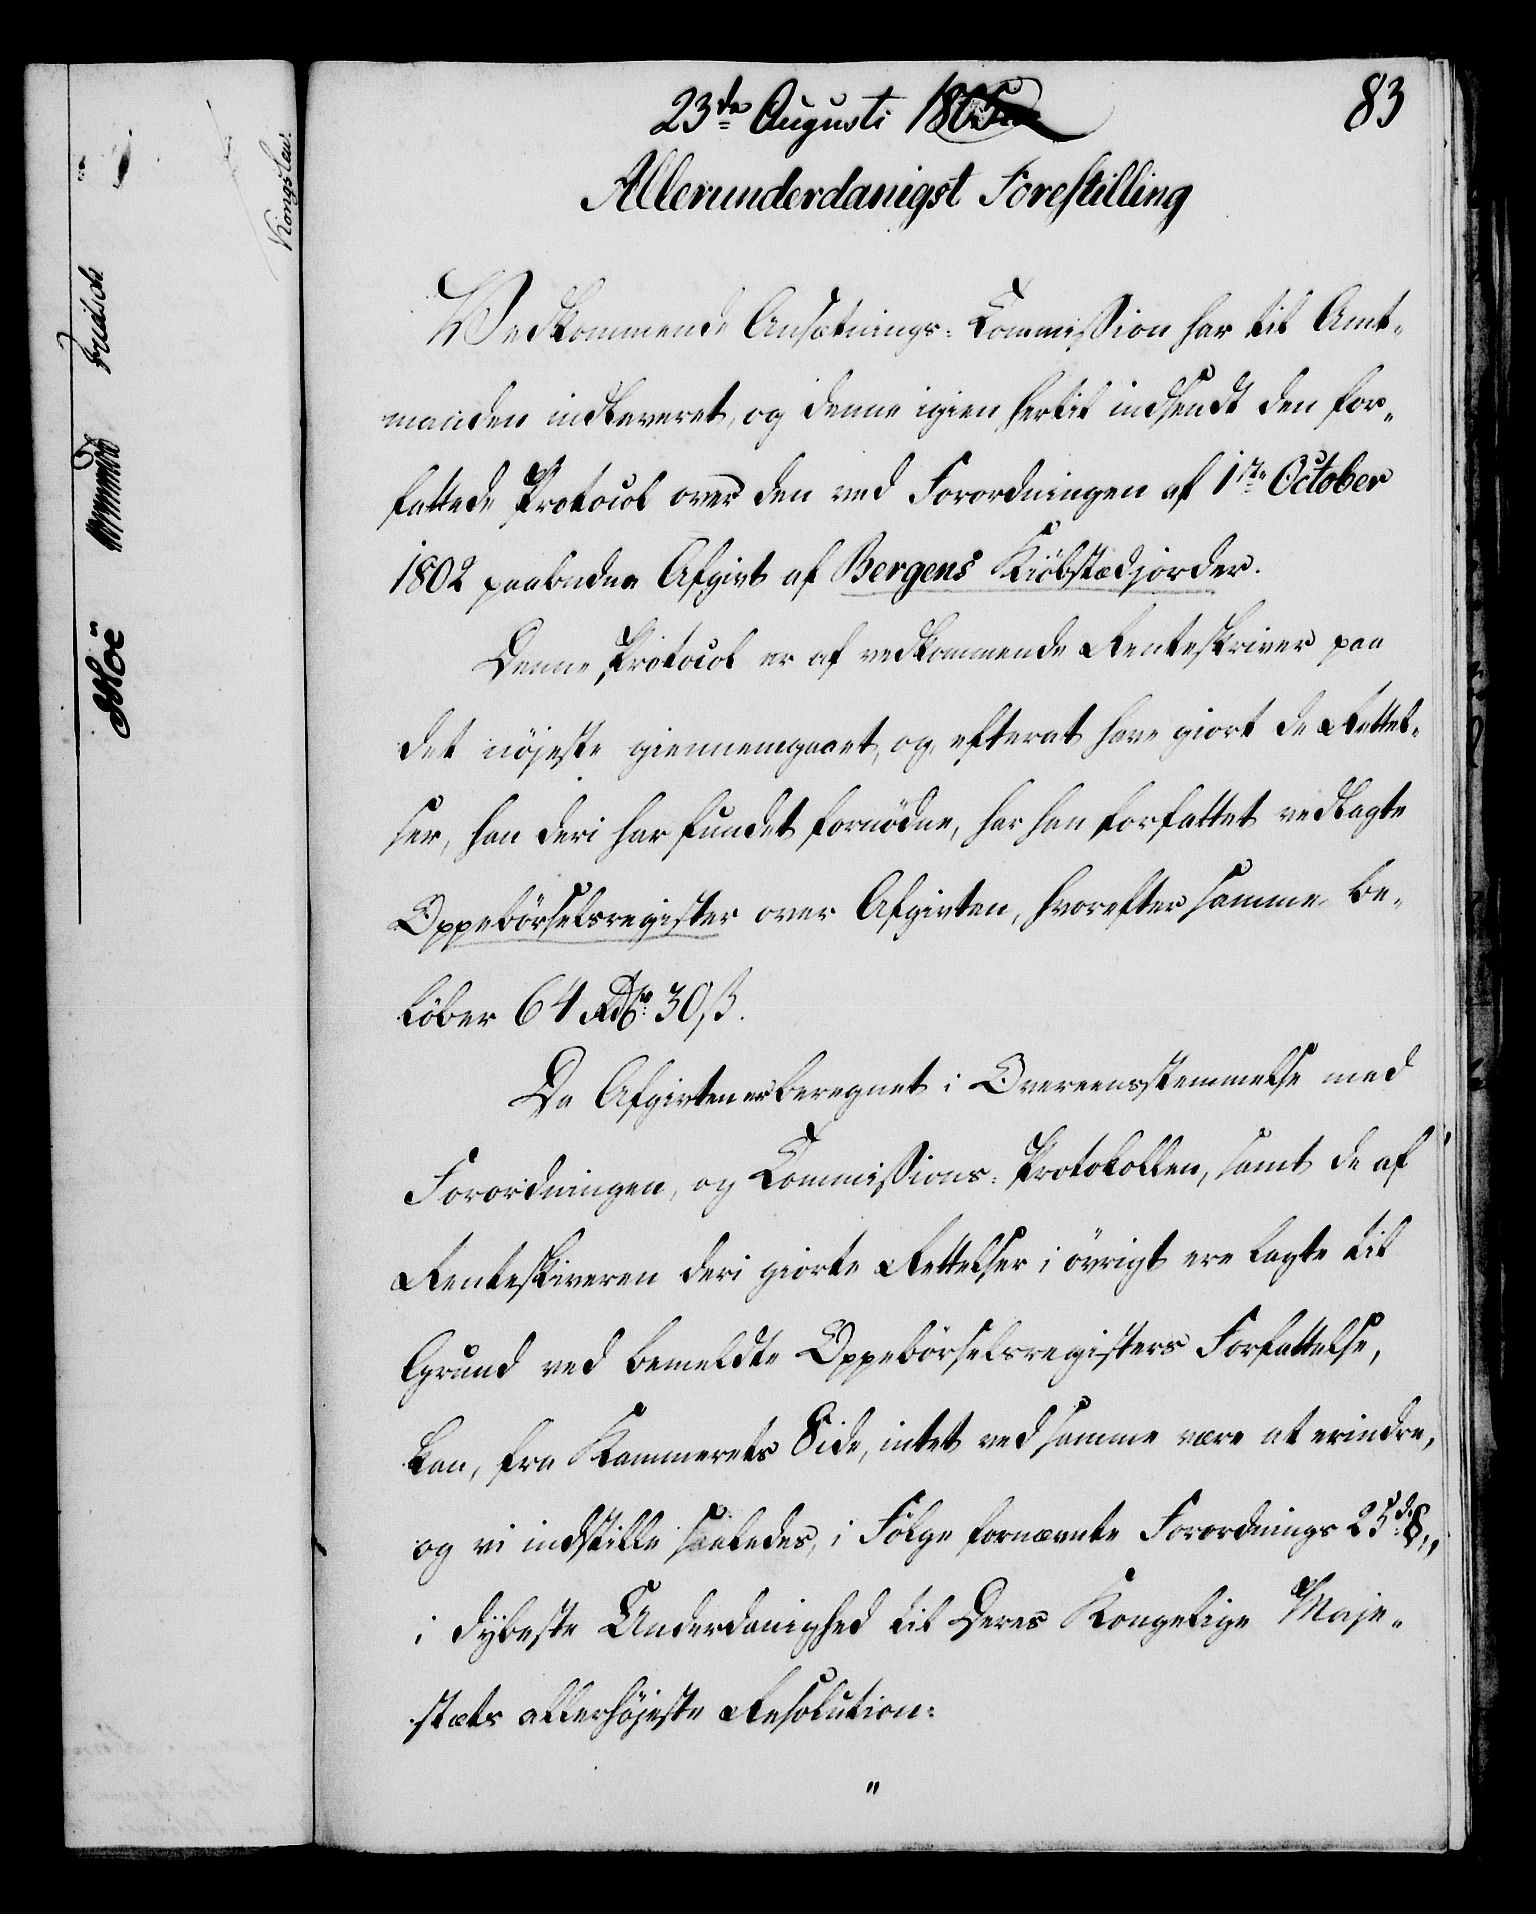 83
23de Augusti 1805
Allerunderdanigst Forestilling
Vedkommende Ansætnings-Commission har til Amt-
manden indleveret, og denne igien hertil indsendt den for-
fattede Protocol over den ved Forordningen af 1ste October
1802 paabudne Afgivt af Bergens Kiöbstædjorder.
Denne Protocol er af vedkommende Renteskriver paa
det nöjeste giennemgaaet, og, efterat have giort de Rettel-
ser, han deri har fundet fornödne, har han forfattet vedlagte
Oppebörselsregister over Afgivten, hvorefter samme be-
löber 64 Rdlr 30 ß.
Da Afgivten er beregnet i Overeensstemmelse med
Forordningen, og Commissions-Protokollen, samt de af
Renteskriveren deri giorte Rettelser i övrigt ere lagte til
Grund ved bemeldte Oppebörselsregisters Forfattelse,
kan, fra Kammerets Side, intet ved samme være at erindre,
og vi indstille saaledes, i Fölge fornævnte Forordnings 25de §,,
i dybeste Underdanighed til Deres Kongelige Maje-
stæts allerhöjeste Resolution:
"
Kongslew.
Fridsch
Möe